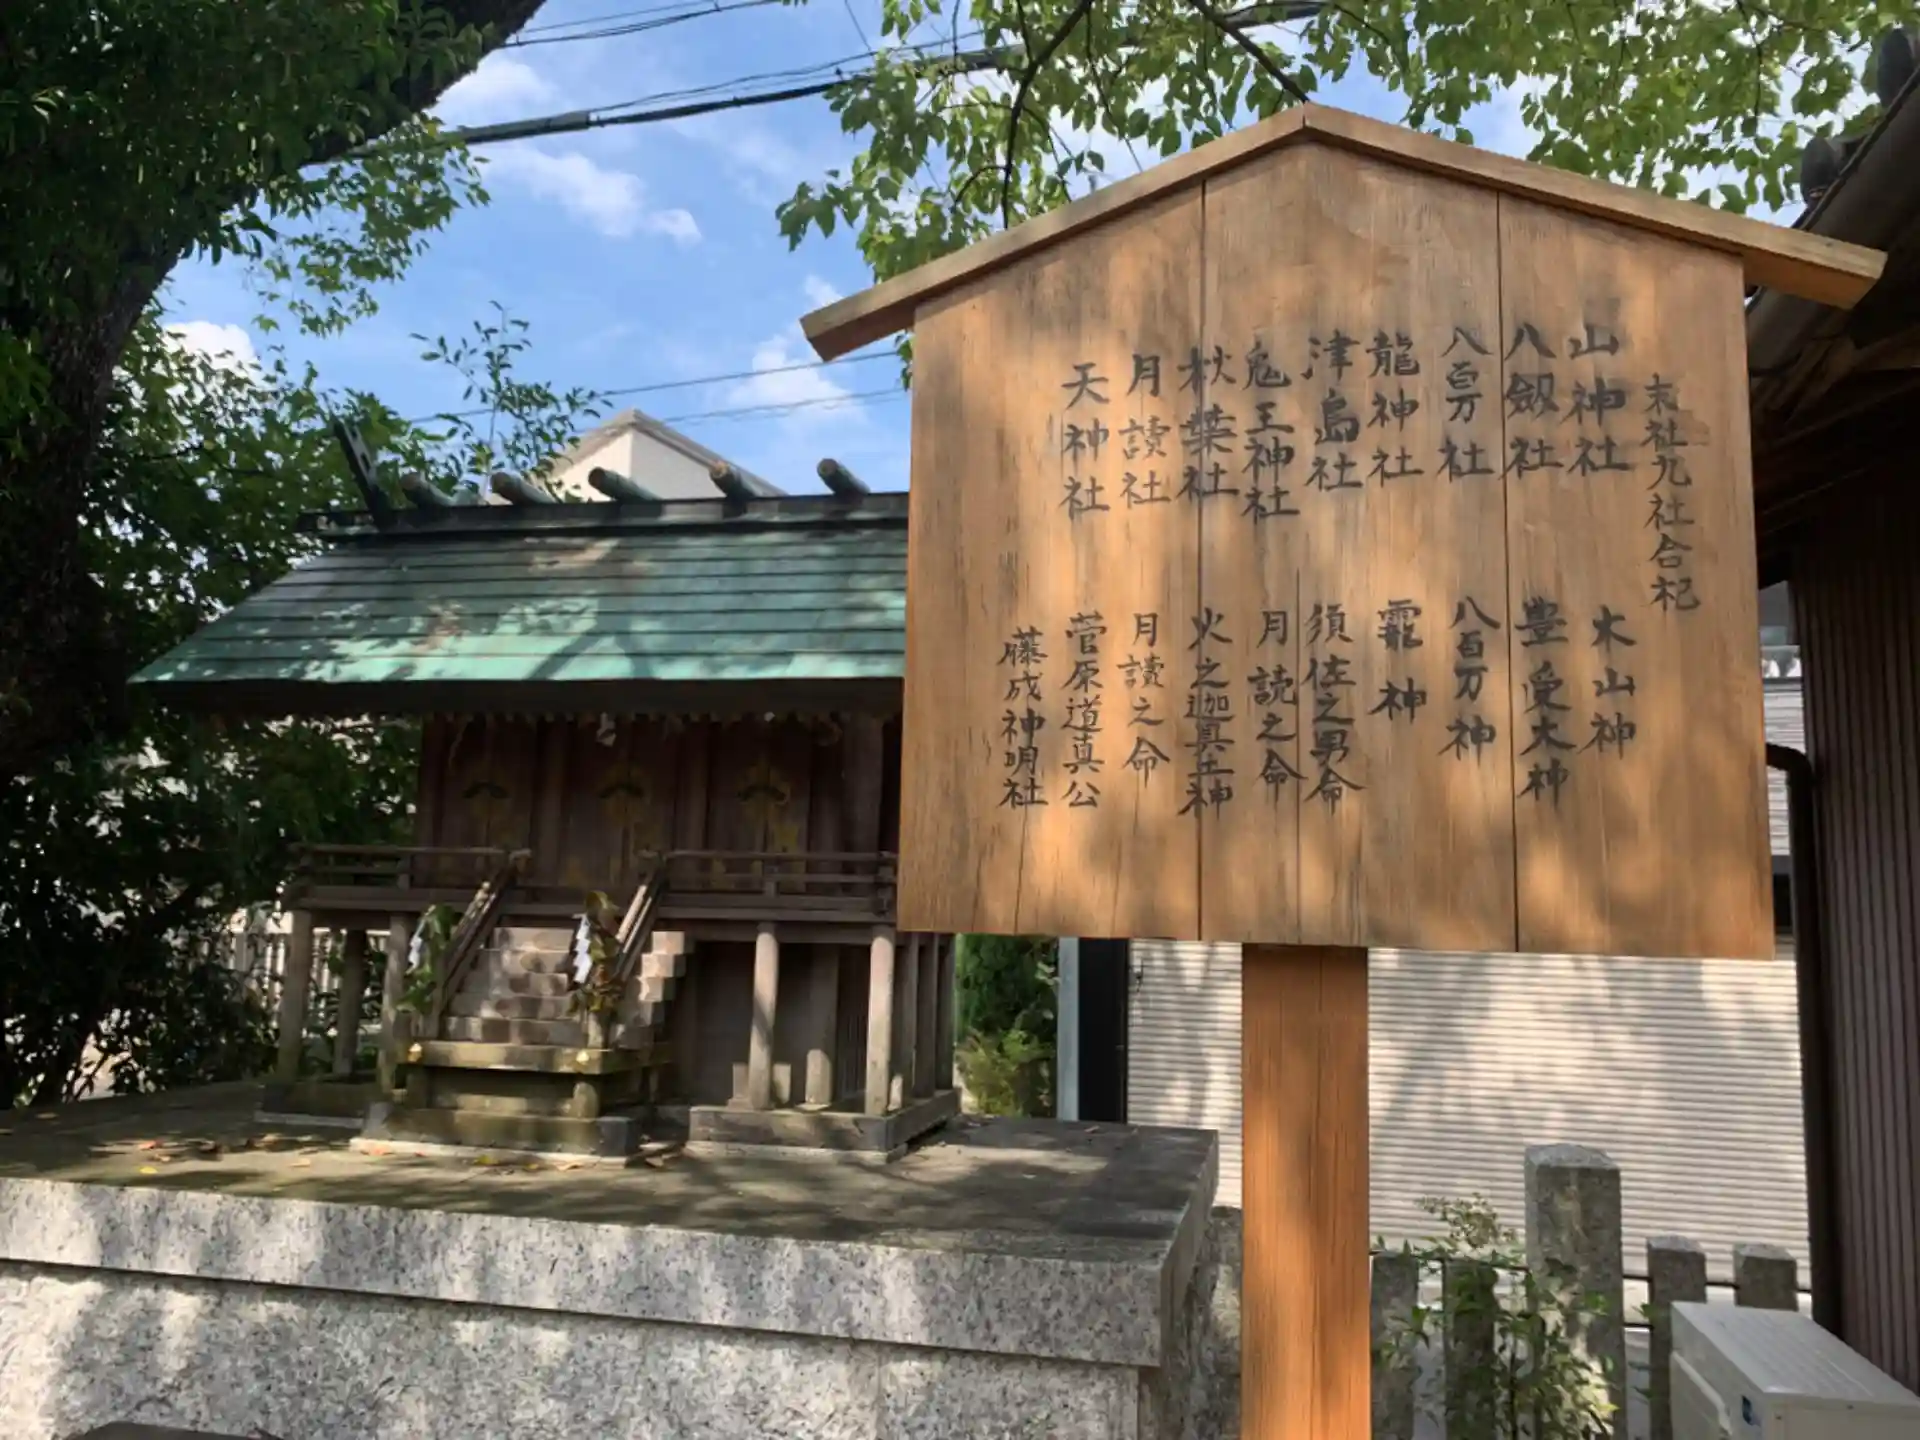 末社九社合祀
山神社　大山神
八劔社　豊受大神
八百万社　八百万神
龍神社　龗神
津島社　須佐之男命
鬼王神社　月読之命
秋葉社　火之迦具土神
月讀社　月讀之命
天神社　菅原道真公
藤成神明社